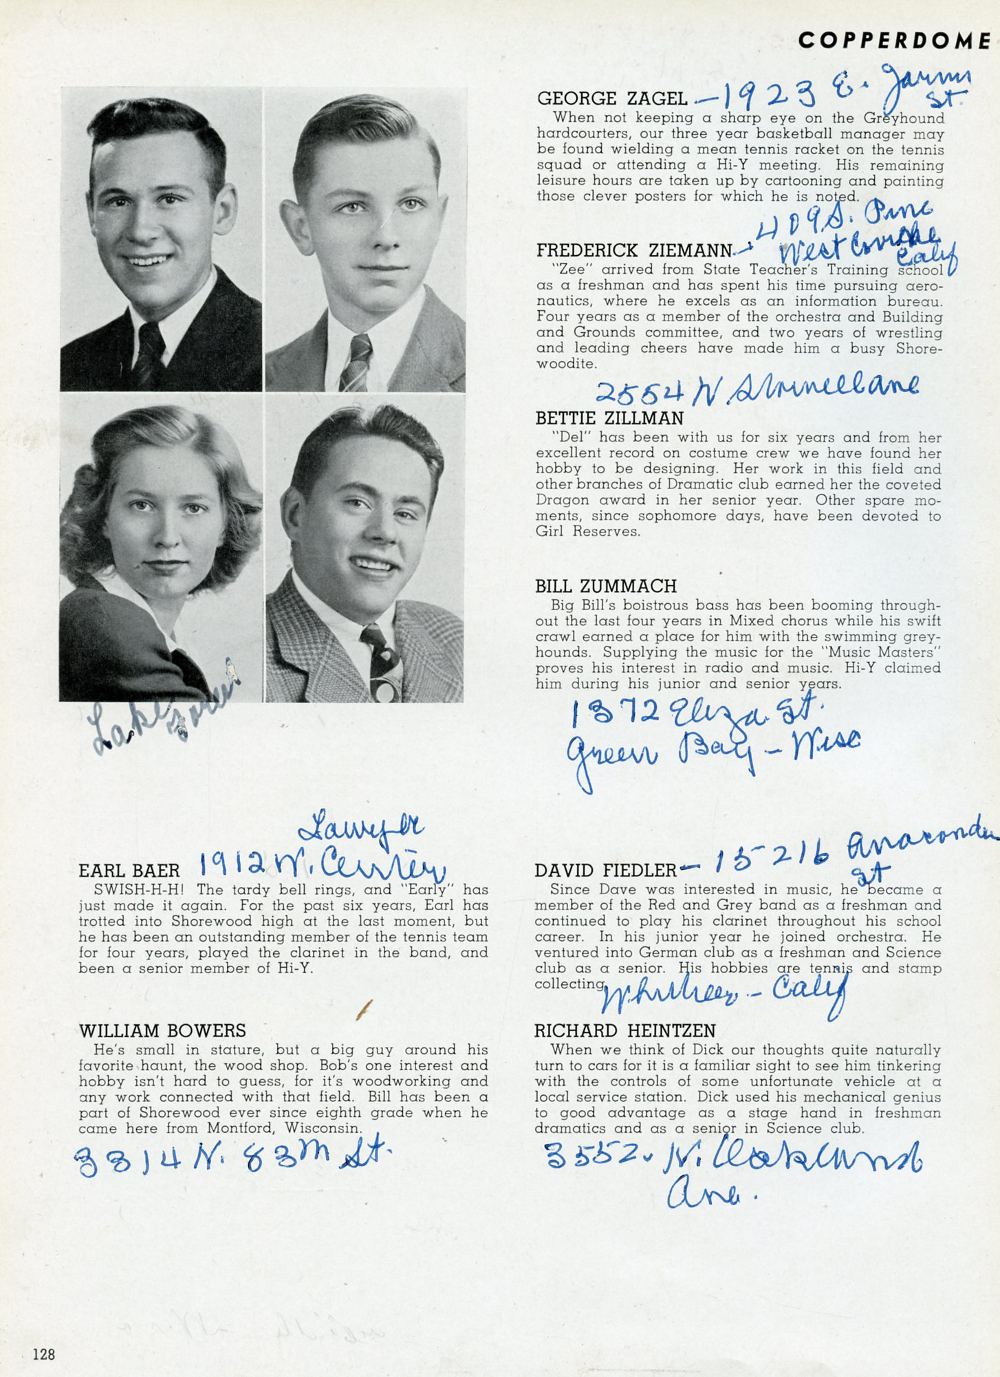 COPPERDOME
GEORGE ZAGEL – 1923 E. Jarvis St.
When not keeping a sharp eye on the Greyhound
hardcourters, our three year basketball manager may
be found wielding a mean tennis racket on the tennis
squad or attending a Hi-Y meeting. His remaining
leisure hours are taken up by cartooning and painting
those clever posters for which he is noted.
409 S. Pine
FREDERICK ZIEMANN – West Covina
Calif
"Zee" arrived from State Teacher's Training school
as a freshman and has spent his time pursuing aero-
nautics, where he excels as an information bureau.
Four years as a member of the orchestra and Building
and Grounds committee, and two years of wrestling
and leading cheers have made him a busy Shore-
woodite.
2554 N
BETTIE ZILLMAN
"Del" has been with us for six years and from her
excellent record on costume crew we have found her
hobby to be designing. Her work in this field and
other branches of Dramatic club earned her the coveted
Dragon award in her senior year. Other spare mo-
ments, since sophomore days, have been devoted to
Girl Reserves.
BILL ZUMMACH
Big Bill's boistrous bass has been booming through-
out the last four years in Mixed chorus while his swift
crawl earned a place for him with the swimming grey-
hounds. Supplying the music for the "Music Masters"
proves his interest in radio and music. Hi-Y claimed
him during his junior and senior years.
1372 Eliza St.
Green Bay – Wisc
Lake
Lawyer
EARL BAER 1912 W. Center
SWISH-H-H! The tardy bell rings, and "Early" has
just made it again. For the past six years, Earl has
trotted into Shorewood high at the last moment, but
he has been an outstanding member of the tennis team
for four years, played the clarinet in the band, and
been a senior member of Hi-Y.
WILLIAM BOWERS
He's small in stature, but a big guy around his
favorite haunt, the wood shop. Bob's one interest and
hobby isn't hard to guess, for it's woodworking and
any work connected with that field. Bill has been a
part of Shorewood ever since eighth grade when he
came here from Montford, Wisconsin.
3314 N. 83rd St.
DAVID FIEDLER – 15216 Anaconda
St
Since Dave was interested in music, he became a
member of the Red and Grey band as a freshman and
continued to play his clarinet throughout his school
career. In his junior year he joined orchestra. He
ventured into German club as a freshman and Science
club as a senior. His hobbies are tennis and stamp
collecting. Whittier – Calif
RICHARD HEINTZEN
When we think of Dick our thoughts quite naturally
turn to cars for it is a familiar sight to see him tinkering
with the controls of some unfortunate vehicle at a
local service station. Dick used his mechanical genius
to good advantage as a stage hand in freshman
dramatics and as a senior in Science club.
3552. N. Oakland
Ave.
128